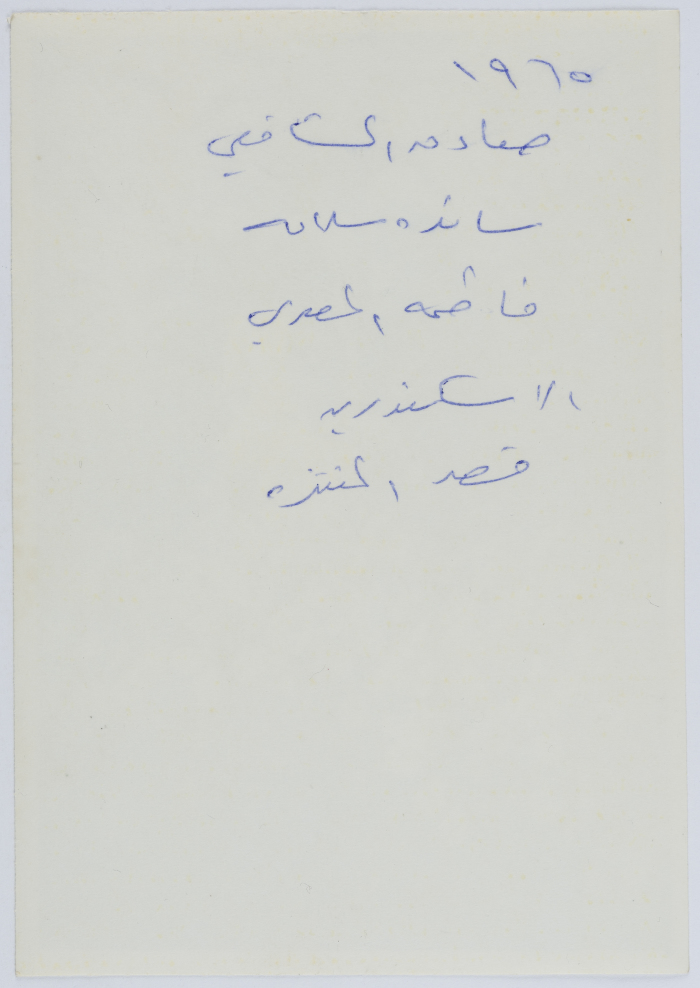 ١٩٦٥
الشافعي
سائده سلامه
فاطمه المصري
الاسكندريه
قصر المنتزه